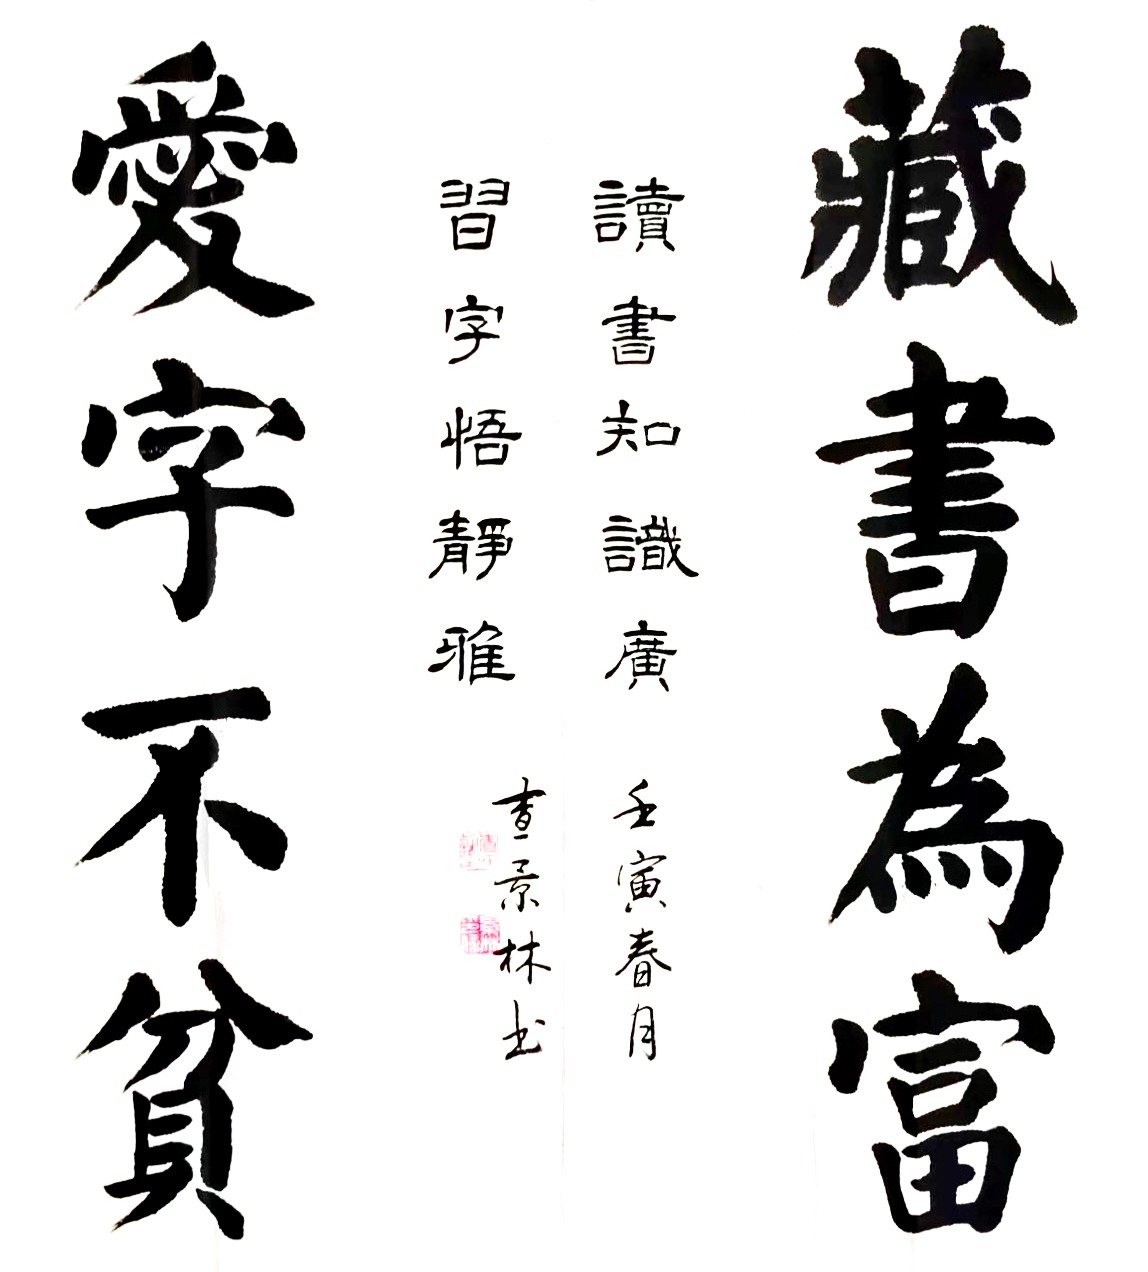 藏書為富
讀書知識廣
壬寅春月
習字悟靜雅
查景林书
愛字不貧